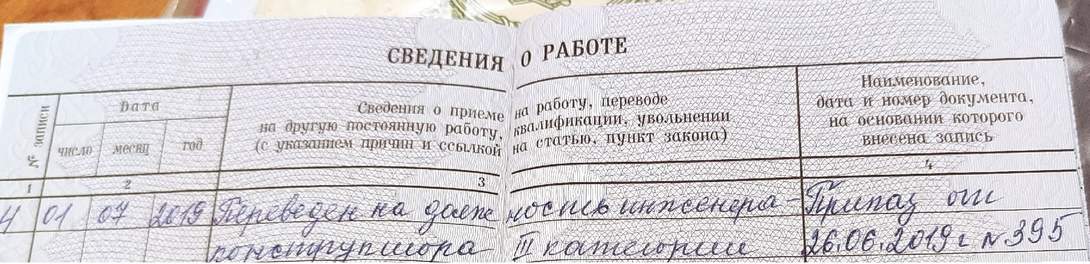 СВЕДЕНИЯ О РАБОТЕ
№ записи
Дата
Сведения о приеме на работу, переводе
на другую постоянную работу, квалификации, увольнении
(с указанием причин и ссылкой на статью, пункт закона)
Наименование,
дата и номер документа,
на основании которого
внесена запись
число месяц год
1 2 3 4
4 01 07 2019 Переведен на должность инженера- Приказ от
конструктора III категории 26.06.2019 г N 395